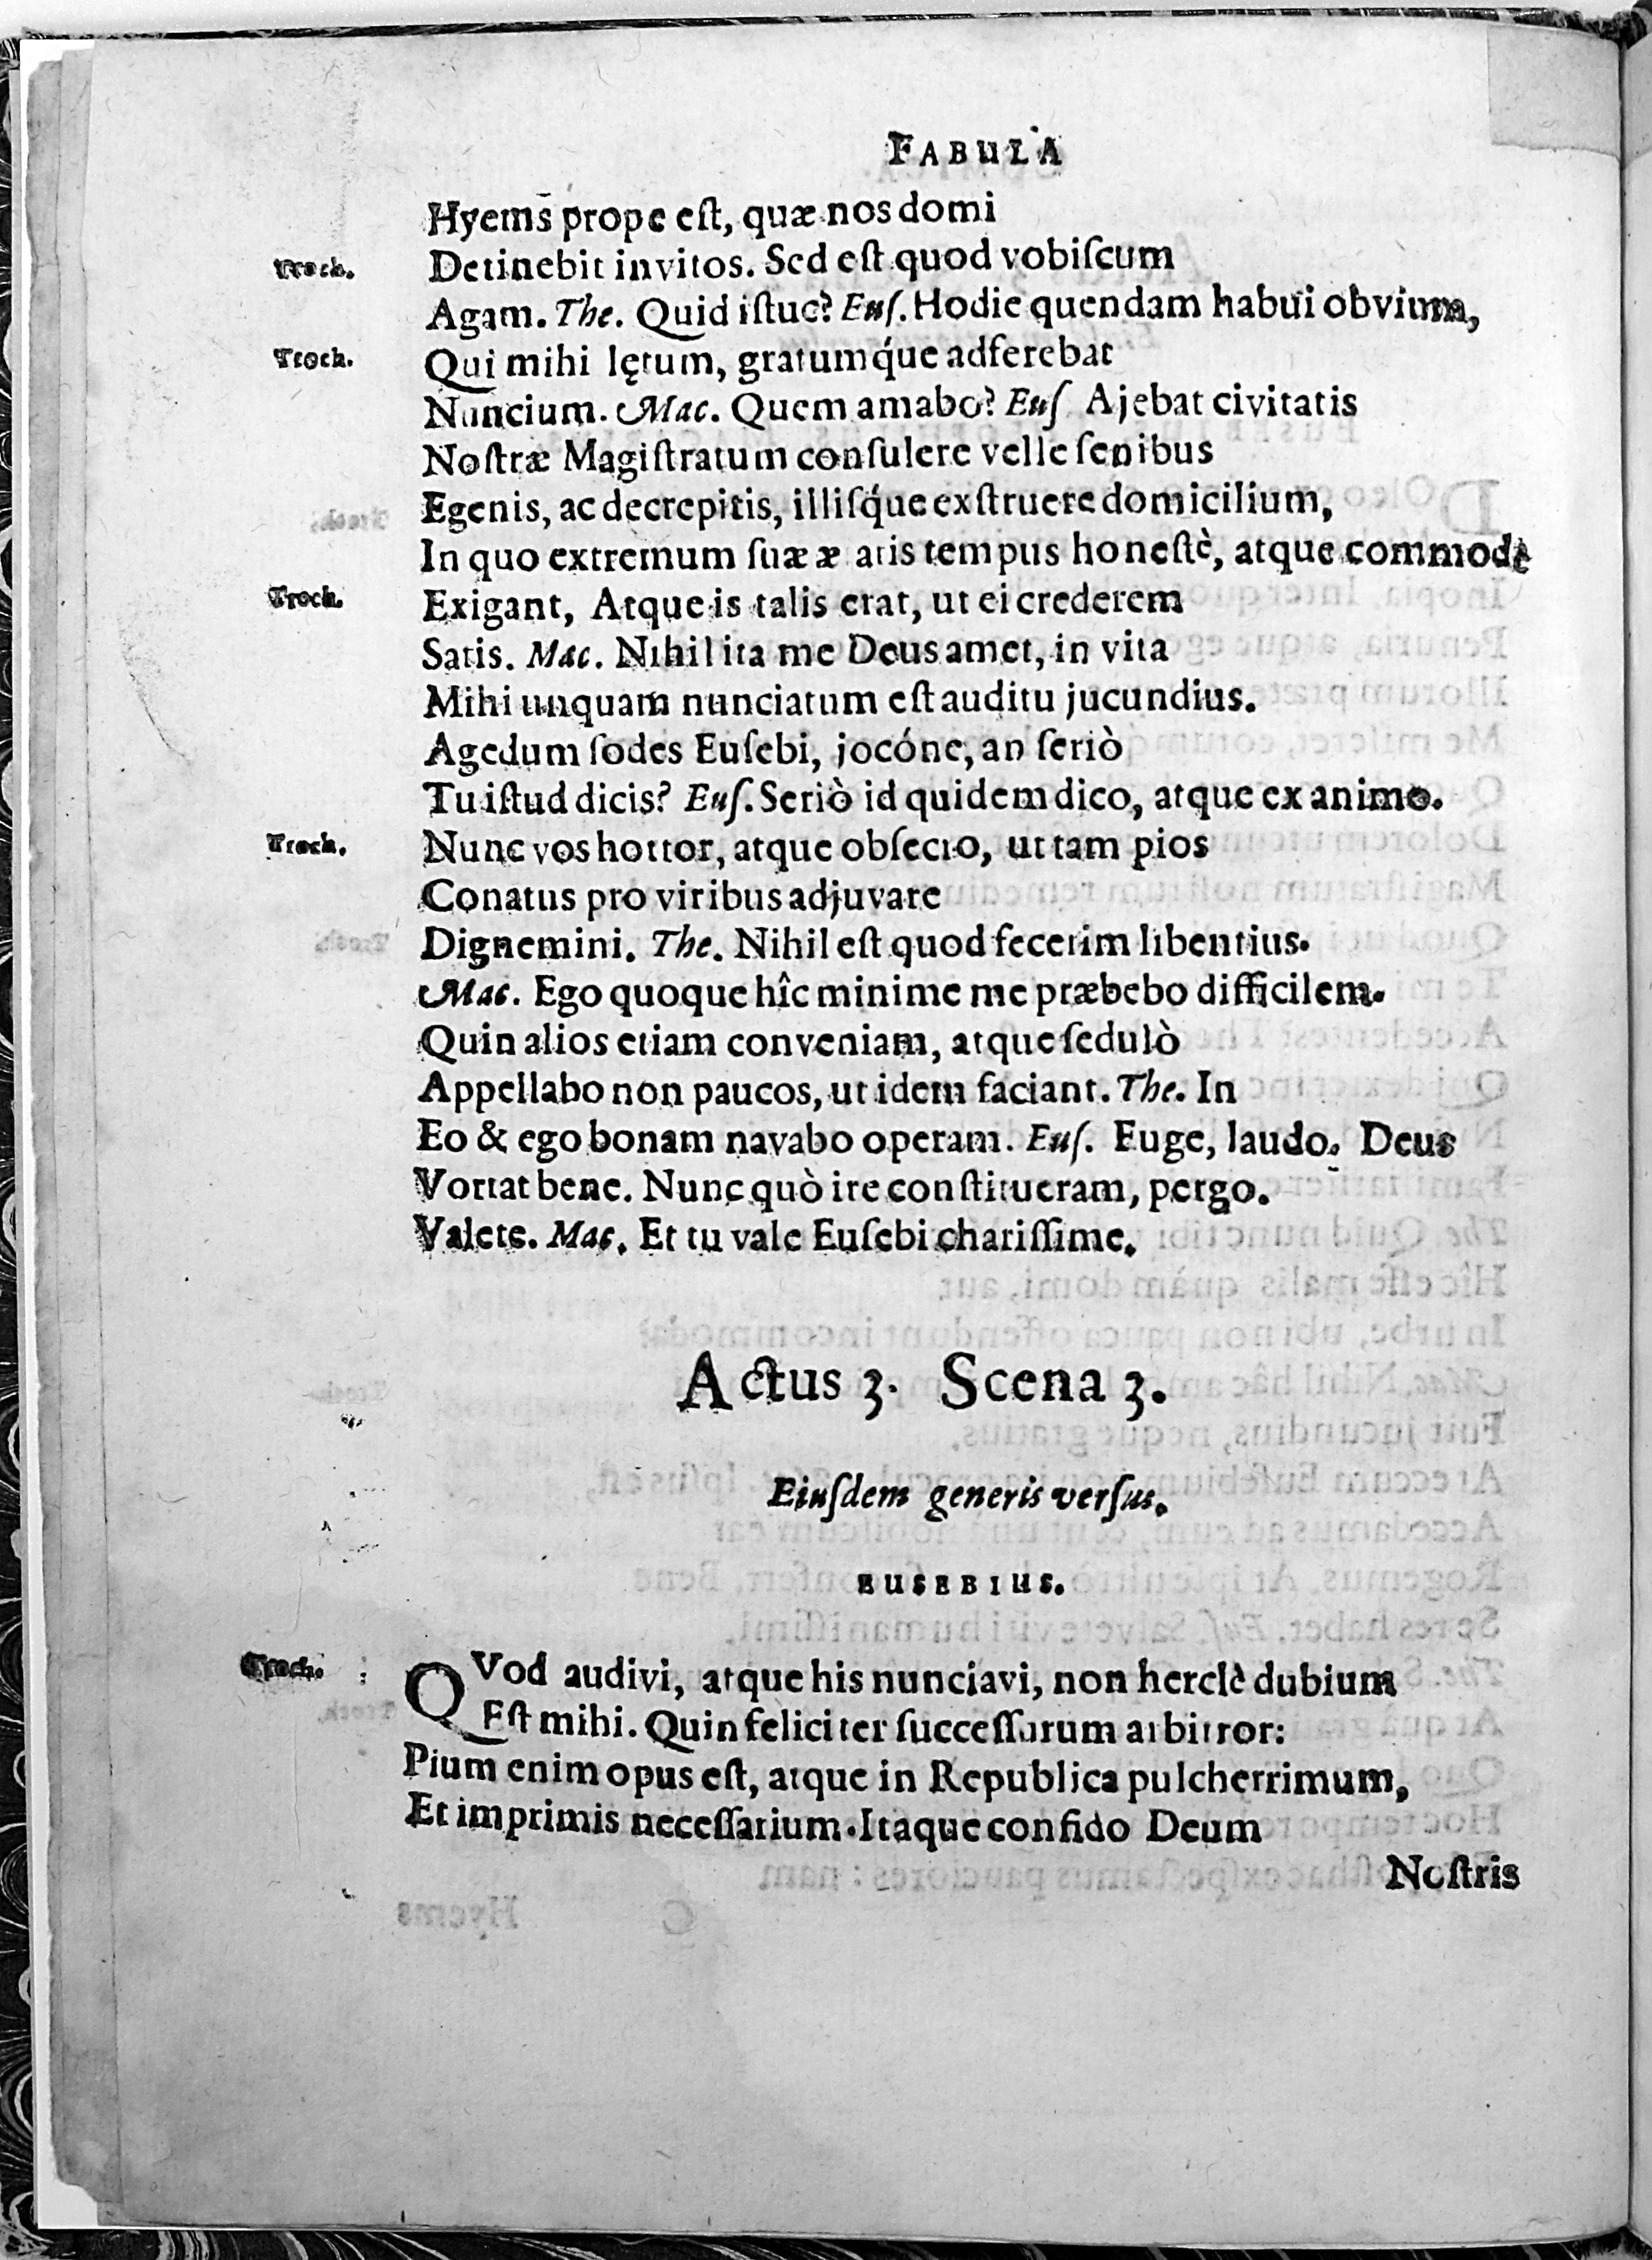 FABULA
Hyems prope est, quæ nos domi
Troch. Detinebit invitos. Sed est quod vobiſcum
Agam. The. Quid iſtuc? Euſ. Hodie quendam habui obvium,
Troch. Qui mihi lętum, gratumq́ue adferebat
Nuncium. Mac. Quem amabo? Euſ Ajebat civitatis
Noſtræ Magiſtratum conſulere velle ſenibus
Egenis, ac decrepitis, illiſq́ue exſtruere domicilium,
In quo extremum ſuæ æ atis tempus honeſtè, atque commodè
Troch. Exigant, Atque is talis erat, ut ei crederem
Satis. Mac. Nihil ita me Deus amet, in vita
Mihi unquam nunciatum eſt auditu jucundius.
Agedum ſodes Euſebi, jocóne, an ſeriò
Tu iſtud dicis? Euſ. Seriò id quidem dico, atque ex animo.
Troch. Nunc vos hortor, atque obſecro, ut tam pios
Conatus pro viribus adjuvare
Dignemini. The. Nihil eſt quod fecerim libentius.
Mac. Ego quoque hîc minime me præbebo difficilem.
Quin alios etiam conveniam, atque ſedulò
Appellabo non paucos, ut idem faciant. The. In
Eo & ego bonam navabo operam. Euſ. Euge, laudo. Deus
Vortat bene. Nunc quò ire conſtitueram, pergo.
Valete. Mac. Et tu vale Euſebi chariſſime.
Actus 3. Scena 3.
Eiuſdem generis verſus.
EUSEBIUS.
Troch. QVod audivi, atque his nunciavi, non herclè dubium
Eſt mihi. Quin feliciter ſucceſſurum arbitror:
Pium enim opus eſt, atque in Republica pulcherrimum,
Et imprimis neceſſarium. Itaque confido Deum
Noſtris